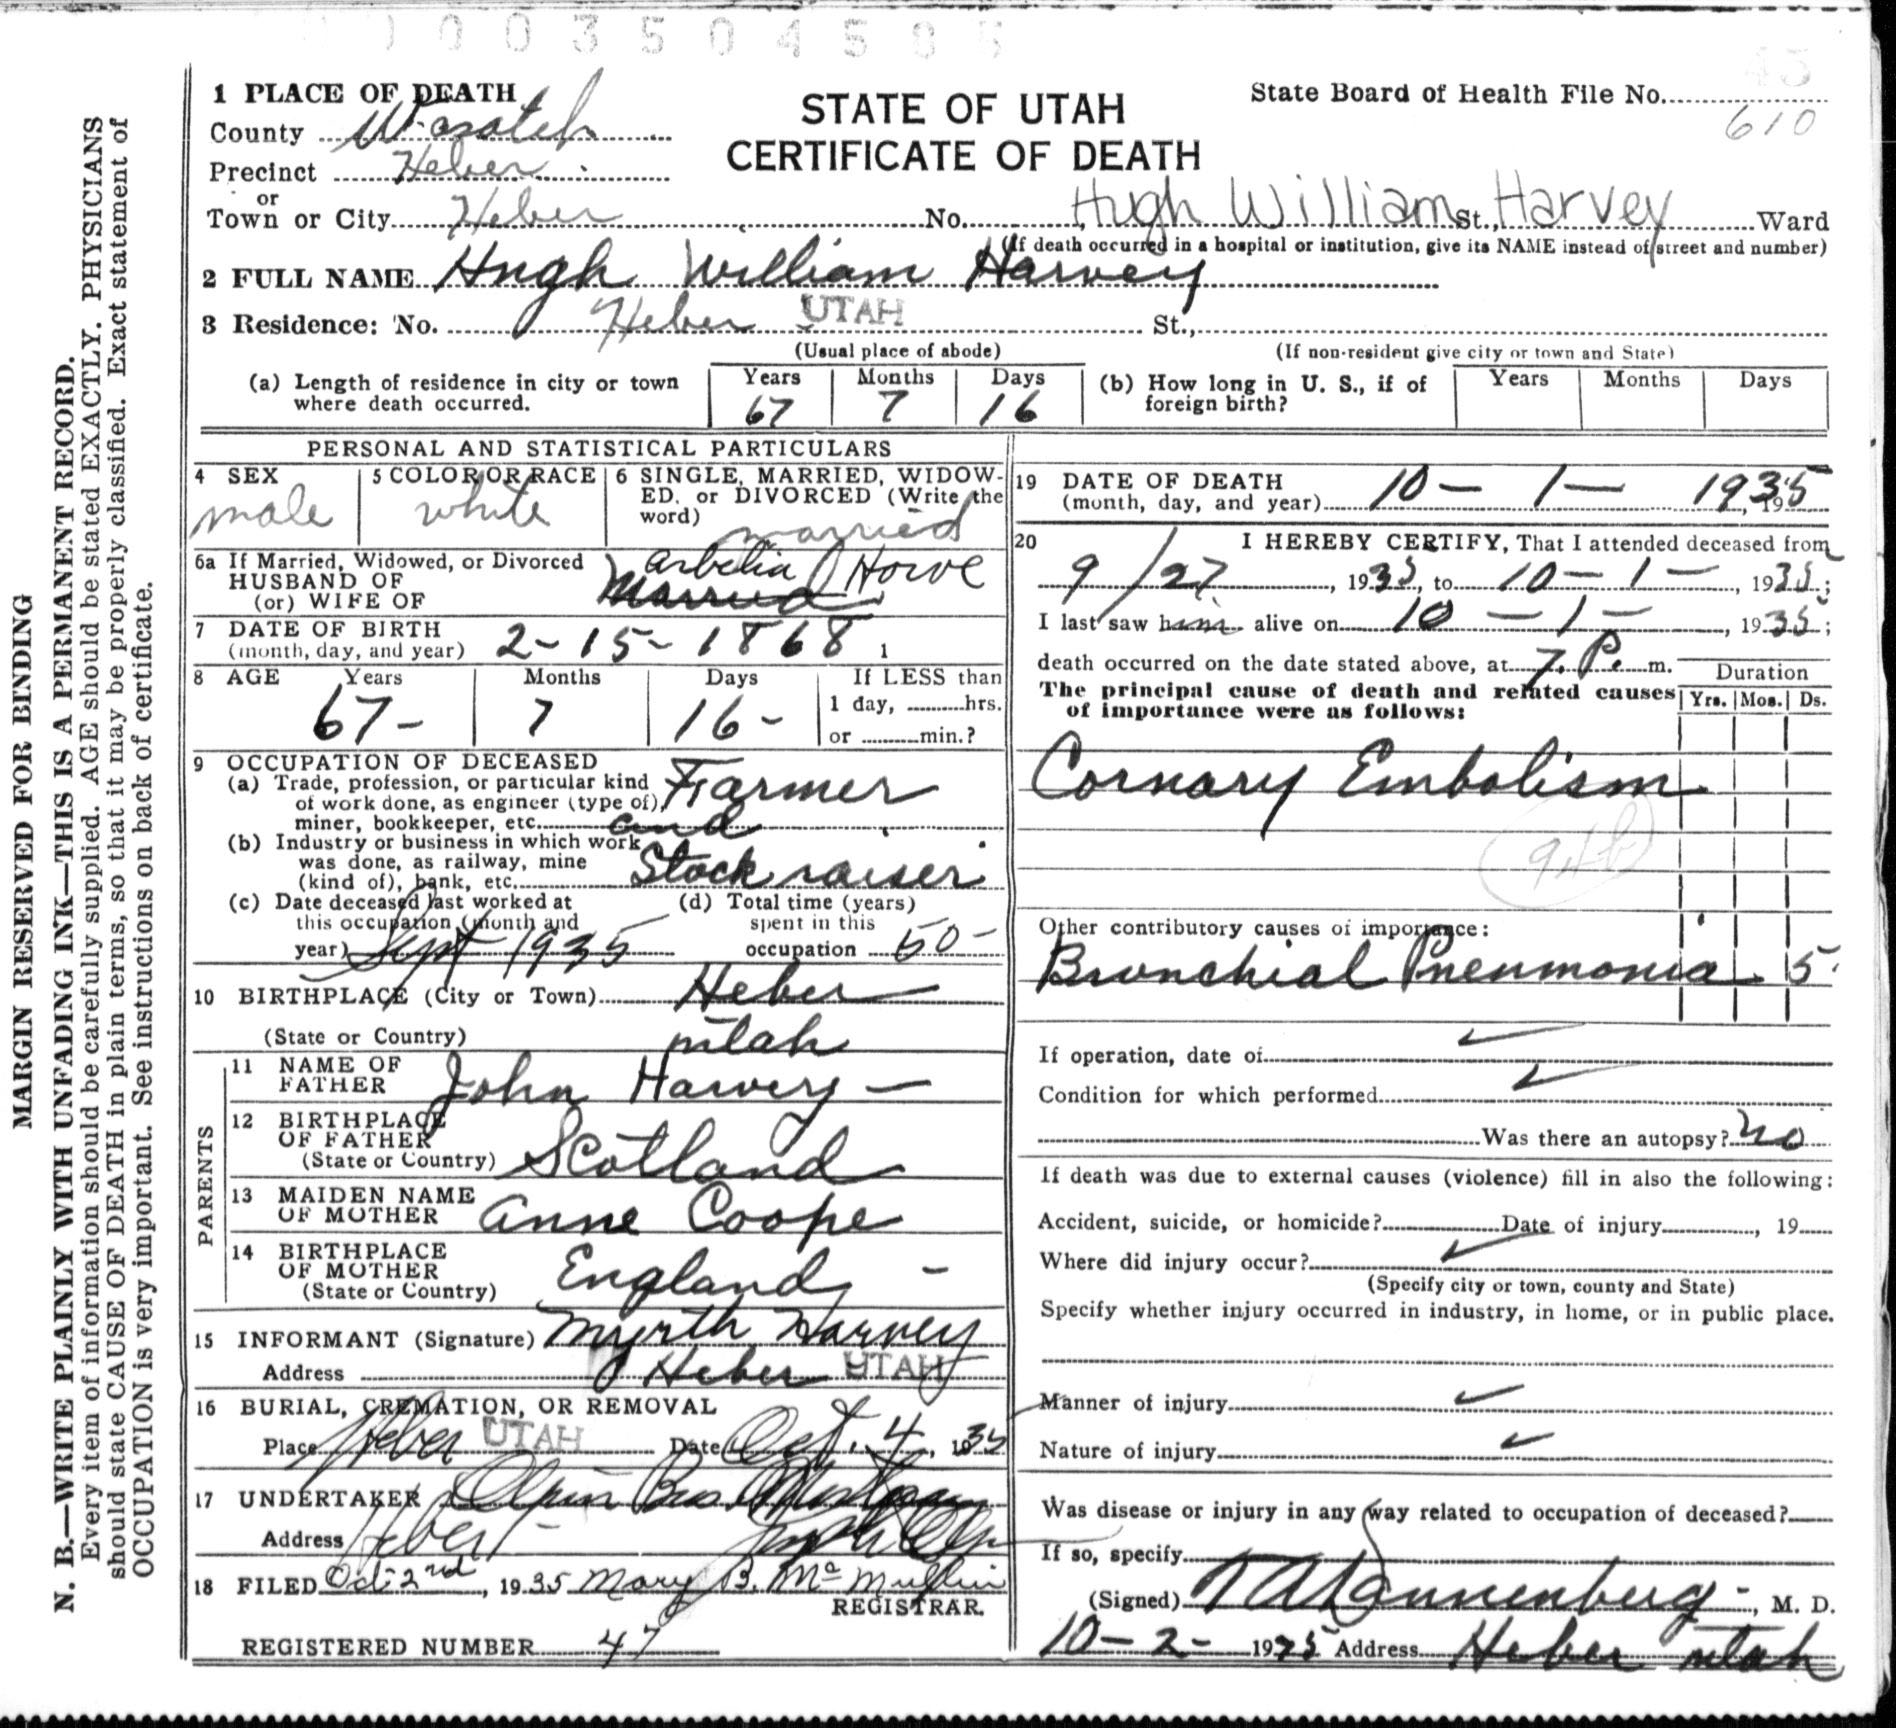 0003504505
45
1 PLACE OF DEATH
County Wasatch
Precinct Heber
or
Town or City Heber No. Hugh William St., Harvey Ward
(If death occurred in a hospital or institution, give its NAME instead of street and number)
STATE OF UTAH
CERTIFICATE OF DEATH
State Board of Health File No.
610
2 FULL NAME Hugh William Harvey
3 Residence: No. Heber UTAH St.,
(Usual place of abode) (If non-resident give city or town and State)
(a) Length of residence in city or town where death occurred. Years 67 Months 7 Days 16
(b) How long in U. S., if of foreign birth? Years Months Days
PERSONAL AND STATISTICAL PARTICULARS
4 SEX male
5 COLOR OR RACE white
6 SINGLE, MARRIED, WIDOWED, or DIVORCED (Write the word) married
6a If Married, Widowed, or Divorced
HUSBAND OF Arbelia Howe
(or) WIFE OF Married
7 DATE OF BIRTH
(month, day, and year) 2-15-1868 1
8 AGE Years 67- Months 7 Days 16-
If LESS than
1 day, hrs.
or min.?
9 OCCUPATION OF DECEASED
(a) Trade, profession, or particular kind
of work done, as engineer (type of), Farmer
miner, bookkeeper, etc. and
(b) Industry or business in which work
was done, as railway, mine
(kind of), bank, etc. Stock raiser
(c) Date deceased last worked at
this occupation (month and
year) Sept 1935
(d) Total time (years)
spent in this
occupation 50-
10 BIRTHPLACE (City or Town) Heber
(State or Country) utah
PARENTS
11 NAME OF
FATHER John Harvey-
12 BIRTHPLACE
OF FATHER
(State or Country) Scotland
13 MAIDEN NAME
OF MOTHER Anne Coope
14 BIRTHPLACE
OF MOTHER
(State or Country) England -
15 INFORMANT (Signature) Myrth Harvey
Address Heber UTAH
16 BURIAL, CREMATION, OR REMOVAL
Place Heber UTAH Date Oct. 4, 1935
17 UNDERTAKER Olpin Bros.
Address Heber-
18 FILED Oct 2nd, 1935 Mary B. McMullin
REGISTRAR.
REGISTERED NUMBER 47
19 DATE OF DEATH
(month, day, and year) 10-1-1935
20 I HEREBY CERTIFY, That I attended deceased from
9/27, 1935, to 10-1-, 1935;
I last saw him alive on 10-1-, 1935;
death occurred on the date stated above, at 7. P. m.
The principal cause of death and related causes
of importance were as follows:
Duration
Yrs. Mos. Ds.
Cornary Embolism
94b
Other contributory causes of importance:
Bronchial Pneumonia 5
If operation, date of
Condition for which performed
Was there an autopsy? no
If death was due to external causes (violence) fill in also the following:
Accident, suicide, or homicide? Date of injury , 19
Where did injury occur?
(Specify city or town, county and State)
Specify whether injury occurred in industry, in home, or in public place.
Manner of injury
Nature of injury
Was disease or injury in any way related to occupation of deceased?
If so, specify
(Signed) Dannenberg-, M. D.
10-2- 1935 Address Heber utah
MARGIN RESERVED FOR BINDING
N. B.—WRITE PLAINLY WITH UNFADING INK—THIS IS A PERMANENT RECORD.
Every item of information should be carefully supplied. AGE should be stated EXACTLY. PHYSICIANS
should state CAUSE OF DEATH in plain terms, so that it may be properly classified. Exact statement of
OCCUPATION is very important. See instructions on back of certificate.